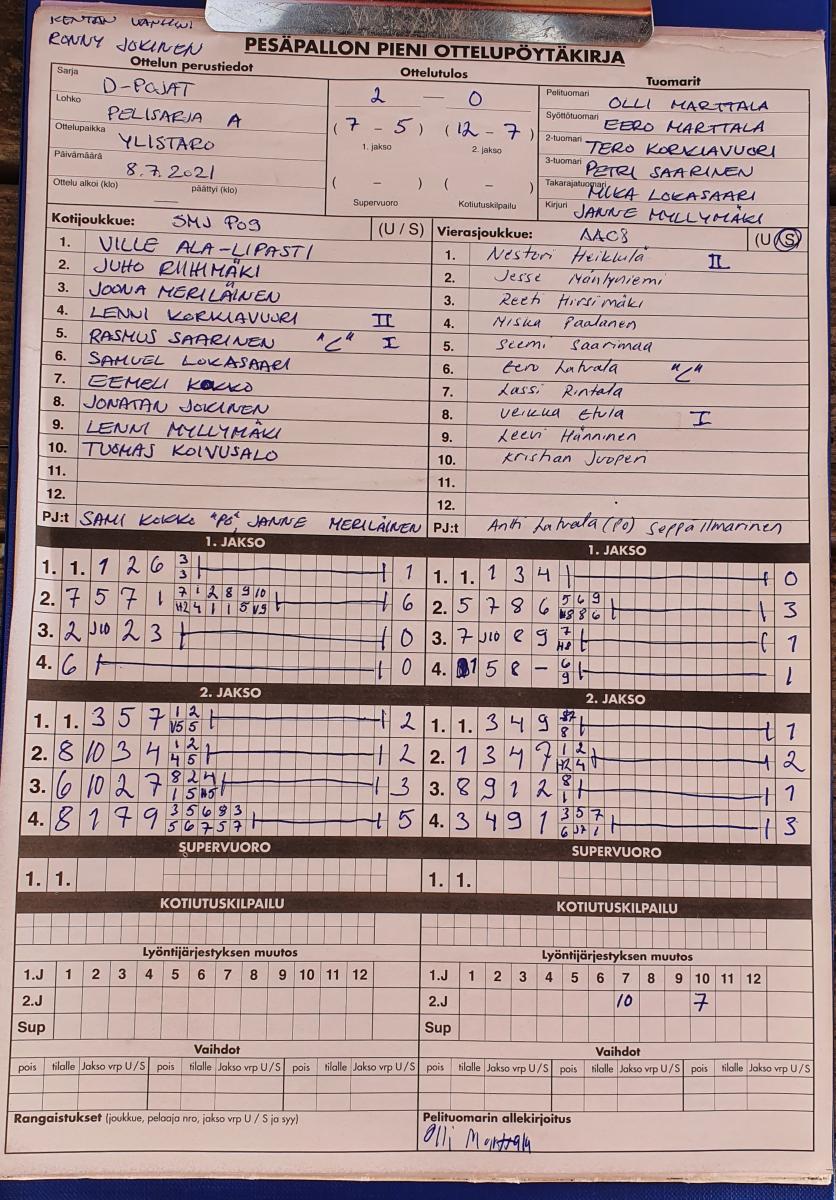 KENTÄN VANHIN
RONNY JOKINEN
PESÄPALLON PIENI OTTELUPÖYTÄKIRJA
Ottelun perustiedot
Sarja D-POJAT
Lohko PELISARJA A
Ottelupaikka YLISTARO
Päivämäärä 8.7.2021
Ottelu alkoi (klo) päättyi (klo)
Ottelutulos
2 — 0
(7 - 5) (12 - 7)
1. jakso 2. jakso
( - ) ( - )
Supervuoro Kotiutuskilpailu
Tuomarit
Pelituomari OLLI MARTTALA
Syöttötuomari EERO MARTTALA
2-tuomari TERO KORKIAVUORI
3-tuomari PETRI SAARINEN
Takarajatuomari MIKA LOKASAARI
Kirjuri JANNE MYLLYMÄKI
Kotijoukkue: SMJ P09 (U / S)
1. VILLE ALA-LIPASTI
2. JUHO RIIHIMÄKI
3. JOONA MERILÄINEN
4. LENNI KORKIAVUORI II
5. RASMUS SAARINEN "C" I
6. SAMUEL LOKASAARI
7. EEMELI KOKKO
8. JONATAN JOKINEN
9. LENNI MYLLYMÄKI
10. TUOMAS KOIVUSALO
11.
12.
PJ:t SAMI KOKKO "PO", JANNE MERILÄINEN
Vierasjoukkue: (U / S)
1. Nestori Heikkilä II
2. Jesse Mäntyniemi
3. Reeti Hirsimäki
4. Miska Paalanen
5. Seemi Saarimaa
6. Eero Latvala "C"
7. Lassi Rintala
8. Veikka Etula I
9. Leevi Hänninen
10. Kristian Juoperi
11.
12.
PJ:t Antti Latvala (PO) Seppä Ilmarinen
1. JAKSO
1. 1. 1 2 6 3 1
3
2. 7 5 7 1 7 1 2 8 9 10 6
H2 4 1 1 5 V9
3. 2 J10 2 3 0
4. 6 0
1. JAKSO
1. 1. 1 3 4 0
2. 5 7 8 6 5 6 9 3
8 6
3. 7 J10 8 9 7 1
H8
4. 1 5 8 - 6 1
9
2. JAKSO
1. 1. 3 5 7 1 2 2
V5 5
2. 8 10 3 4 1 2 2
4 5
3. 6 10 2 7 8 2 4 3
1 5
4. 8 1 7 9 3 5 6 8 3 5
5 6 7 5 7
2. JAKSO
1. 1. 3 4 9 1
8
2. 1 3 4 7 1 2 2
H2 4
3. 8 9 1 2 8 1
1
4. 3 4 9 1 3 5 7 3
6 J7 1
SUPERVUORO
1. 1.
SUPERVUORO
1. 1.
KOTIUTUSKILPAILU
KOTIUTUSKILPAILU
Lyöntijärjestyksen muutos
1.J 1 2 3 4 5 6 7 8 9 10 11 12
2.J
Sup
Lyöntijärjestyksen muutos
1.J 1 2 3 4 5 6 7 8 9 10 11 12
2.J 10 7
Sup
Vaihdot
pois tilalle Jakso vrp U/S pois tilalle Jakso vrp U/S pois tilalle Jakso vrp U/S
Vaihdot
pois tilalle Jakso vrp U/S pois tilalle Jakso vrp U/S pois tilalle Jakso vrp U/S
Rangaistukset (joukkue, pelaaja nro, jakso vrp U / S ja syy)
Pelituomarin allekirjoitus
Olli Marttala